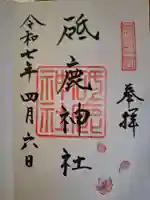 奉拝
砥鹿神社
令和七年四月六日